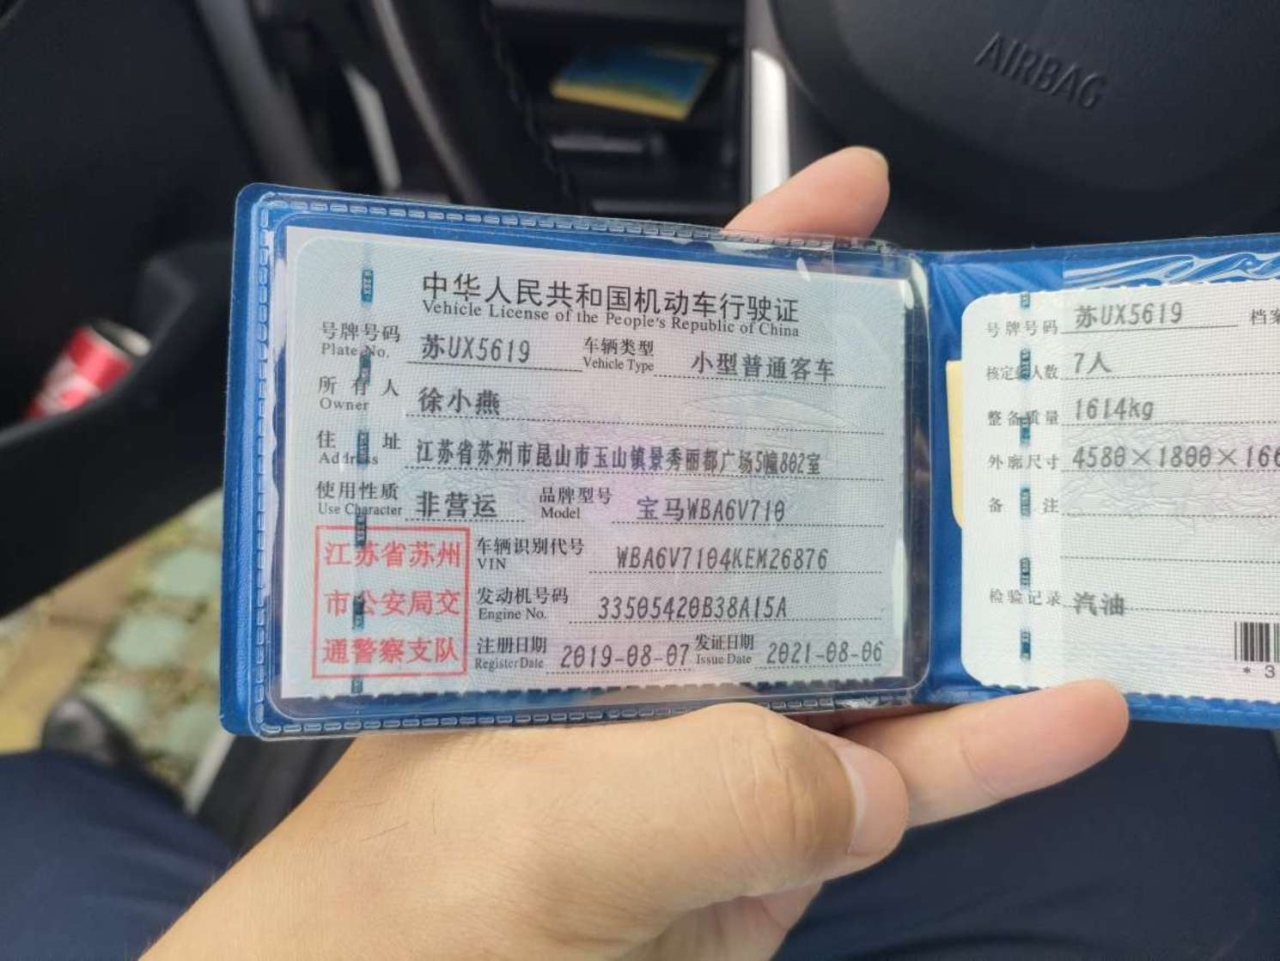 AIRBAG
中华人民共和国机动车行驶证
Vehicle License of the People's Republic of China
号牌号码 苏UX5619 车辆类型 小型普通客车
Plate No. Vehicle Type
所有人 徐小燕
Owner
住址 江苏省苏州市昆山市玉山镇景秀丽都广场5幢802室
Address
使用性质 非营运 品牌型号 宝马WBA6V710
Use Character Model
江苏省苏州
市公安局交
通警察支队
车辆识别代号 WBA6V7104KEM26876
VIN
发动机号码 33505420B38A15A
Engine No.
注册日期 2019-08-07 发证日期 2021-08-06
Register Date Issue Date
号牌号码 苏UX5619 档案
核定载人数 7人
整备质量 1614kg
外廓尺寸 4580×1800×166
备注
检验记录 汽油
* 3